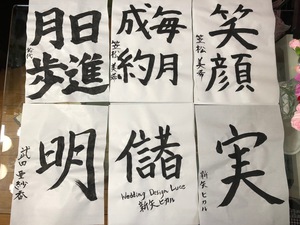 笑顔
笠松 美希
毎月
成約
笠松 美希
日進
月歩
実
新矢 ヒカル
儲
Wedding Design Luce
新矢 ヒカル
明
武田 亜紗香